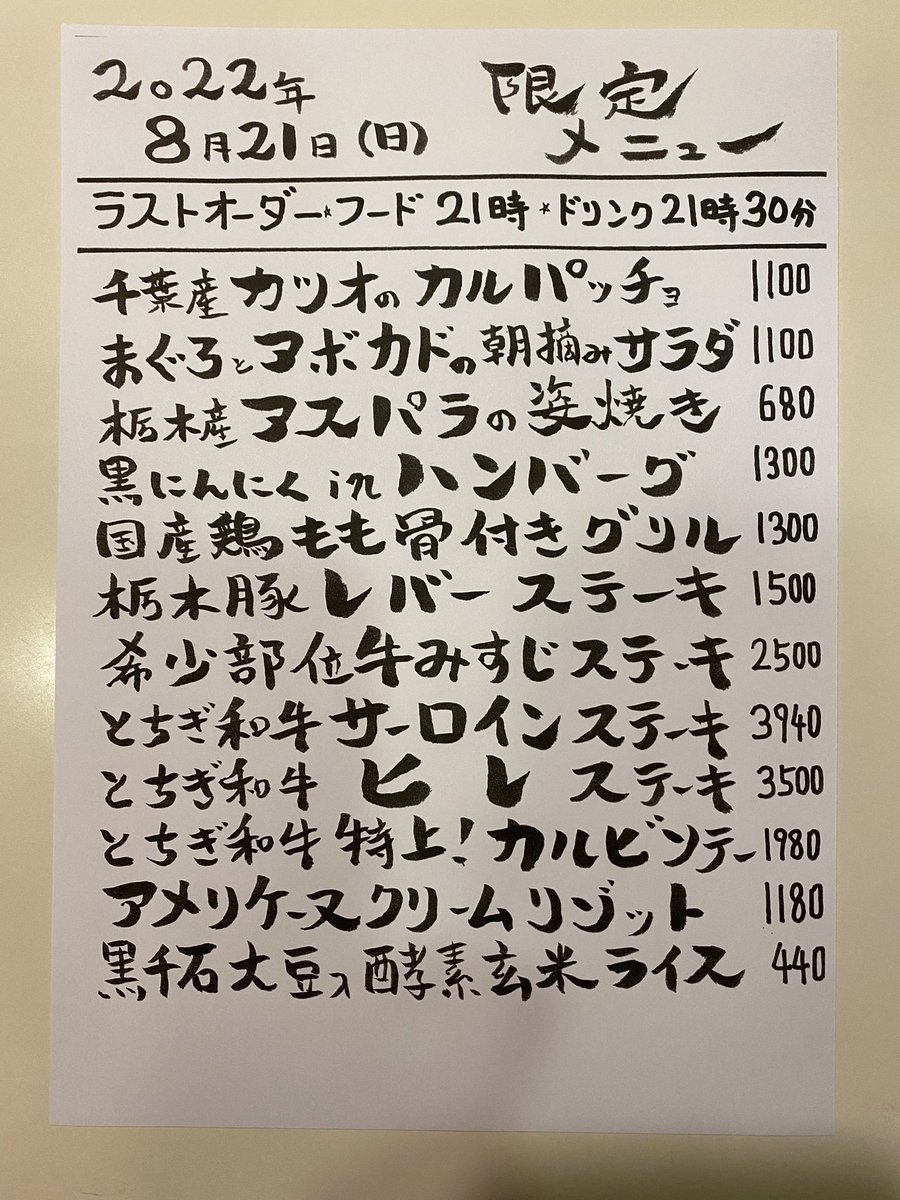 2022年 限定
8月21日(日) メニュー
ラストオーダー★フード 21時 ★ドリンク21時30分
千葉産 カツオのカルパッチョ 1100
まぐろとアボカドの朝摘みサラダ 1100
栃木産 アスパラの姿焼き 680
黒にんにく in ハンバーグ 1300
国産鶏もも骨付きグリル 1300
栃木豚レバーステーキ 1500
希少部位牛みすじステーキ 2500
とちぎ和牛サーロインステーキ 3940
とちぎ和牛 ヒレステーキ 3500
とちぎ和牛特上!カルビソテー 1980
アメリケーヌクリームリゾット 1180
黒千石大豆入酵素玄米ライス 440